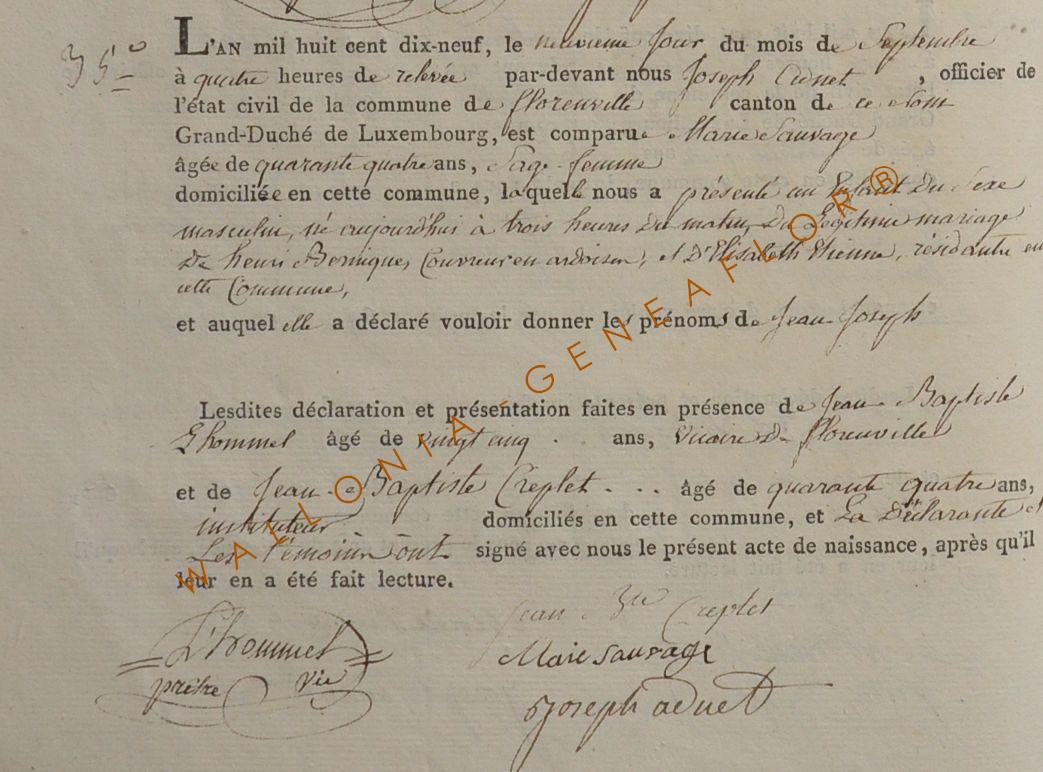 35°
L'AN mil huit cent dix-neuf, le neuvieme jour du mois de Septembre
à quatre heures de relevée par-devant nous Joseph Adnet, officier de
l'état civil de la commune de florenville canton de ce Nom
Grand-Duché de Luxembourg, est comparue Marie Sauvage
âgée de quarante quatre ans, Sage femme
domiciliée en cette commune, laquelle nous a présenté un Enfant du Sexe
masculin, né aujourd'hui à trois heures du matin, du Légitime mariage
de henri Bernique, Couvreur en ardoises, et d'Elisabeth Etienne, résidante en
cette Commune,
et auquel elle a déclaré vouloir donner les prénoms de Jean Joseph
Lesdites déclaration et présentation faites en présence de Jean Baptiste
L'hommel âgé de vingt cinq ans, Vicaire de florenville
et de Jean Baptiste Creplet . . . âgé de quarante quatre ans,
instituteur domiciliés en cette commune, et La Déclarante et
Les témoins ont signé avec nous le présent acte de naissance, après qu'il
leur en a été fait lecture.
Jean Bte Creplet
L'hommel
Marie sauvage
prêtre vic
Joseph adnet
WALLONIA-GENEAFLOR®